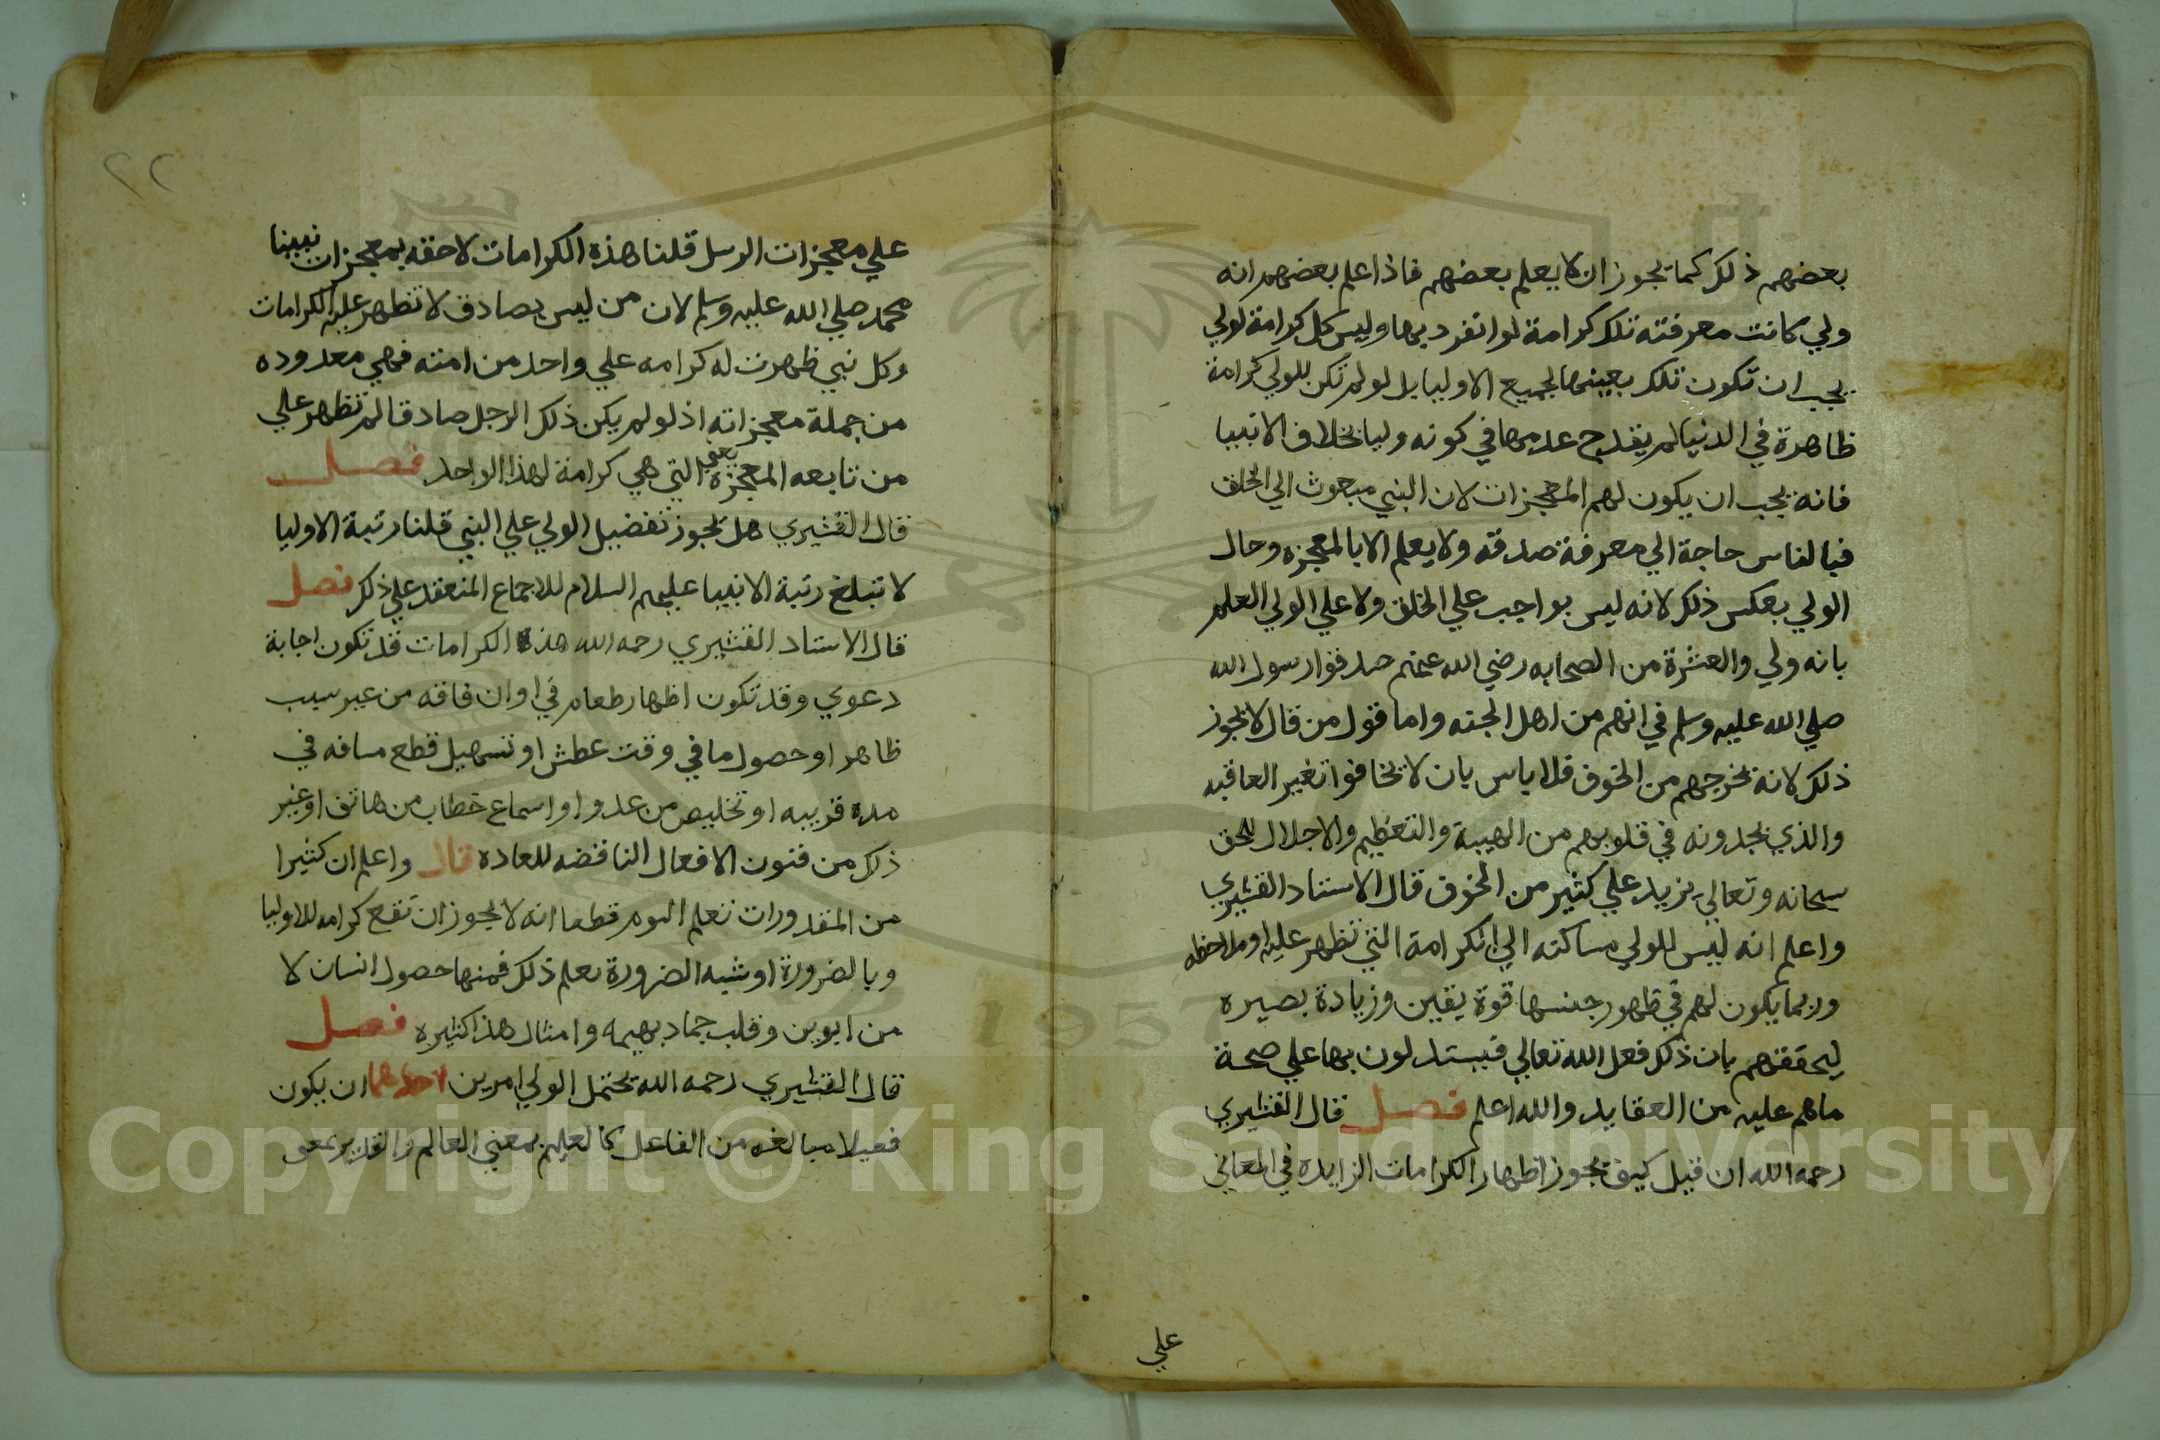 بعضهم ذلك كما يجوز ان لا يعلم بعضهم فاذا علم بعضهم انه
ولي كانت معرفته تلك كرامة لو انفرد بها وليس كل كرامة لولي
يجب ان تكون تلك بعينها لجميع الاوليا بل لو لم تكن للولي كرامة
ظاهرة في الدنيا لم يقدح عدمها في كونه وليا بخلاف الانبيا
فانه يجب ان يكون لهم المعجزات لان النبي مبعوث الي الخلق
فبالناس حاجة الي معرفة صدقه ولا يعلم الا بالمعجزه وحال
الولي بعكس ذلك لانه ليس بواجب علي الخلق ولا علي الولي العلم
بانه ولي والعشرة من الصحابه رضي الله عنهم صدقوا رسول الله
صلي الله عليه وسلم في انهم من اهل الجنه واما قول من قال لا يجوز
ذلك لانه يخرجهم من الخوف فلا باس بان لا يخافوا تغير العاقبه
والذي يجدونه في قلوبهم من الهيبة والتعظيم والاجلال للحق
سبحانه وتعالي يزيد علي كثير من الخوف قال الاستاد القشيري
واعلم انه ليس للولي مساكنه الي الكرامة التي تظهر عليه او ملاحظه
وربما يكون لهم في ظهور جنسها قوة يقين وزيادة بصيره
ليحققهم بان ذلك فعل الله تعالي فيستدلون بها علي صحة
ماهم عليه من العقايد والله اعلم فصل قال القشيري
رحمه الله ان قيل كيف يجوز اظهار الكرامات الزايده في المعاني
علي
٢٢
علي معجزات الرسل قلنا هذه الكرامات لاحقه بمعجزات نبينا
محمد صلي الله عليه وسلم لان من ليس بصادق لا تظهر عليه الكرامات
وكل نبي ظهرت له كرامه علي واحد من امته فهي معدوده
من جملة معجزاته اذ لو لم يكن ذلك الرجل صادقا لم تظهر علي
من تابعه المعجزة يعني التي هي كرامة لهذا الواحد فصل
قال القشيري هل يجوز تفضيل الولي علي النبي قلنا رتبة الاوليا
لا تبلغ رتبة الانبيا عليهم السلام للاجماع المنعقد علي ذلك فصل
قال الاستاد القشيري رحمه الله هذه الكرامات قد تكون اجابة
دعوي وقد تكون اظهار طعام في اوان فاقه من غير سبب
ظاهر او حصول ما في وقت عطش او تسهيل قطع مسافه في
مدة قريبه او تخليص من عدو او اسماع خطاب من هاتف او غير
ذلك من فنون الافعال الناقضه للعاده قال واعلم ان كثيرا
من المقدورات نعلم اليوم قطعا انه لا يجوز ان تقع كرامه للاوليا
وبالضرورة او شبه الضرورة نعلم ذلك فمنها حصول انسان لا
من ابوين وقلب جماد بهيمه وامثال هذا كثيره فصل
قال القشيري رحمه الله يحتمل الولي امرين احدهما ان يكون
فعيلا مبالغه من الفاعل كالعليم بمعني العالم والقدير بمعني
1957
Copyright © King Saud University